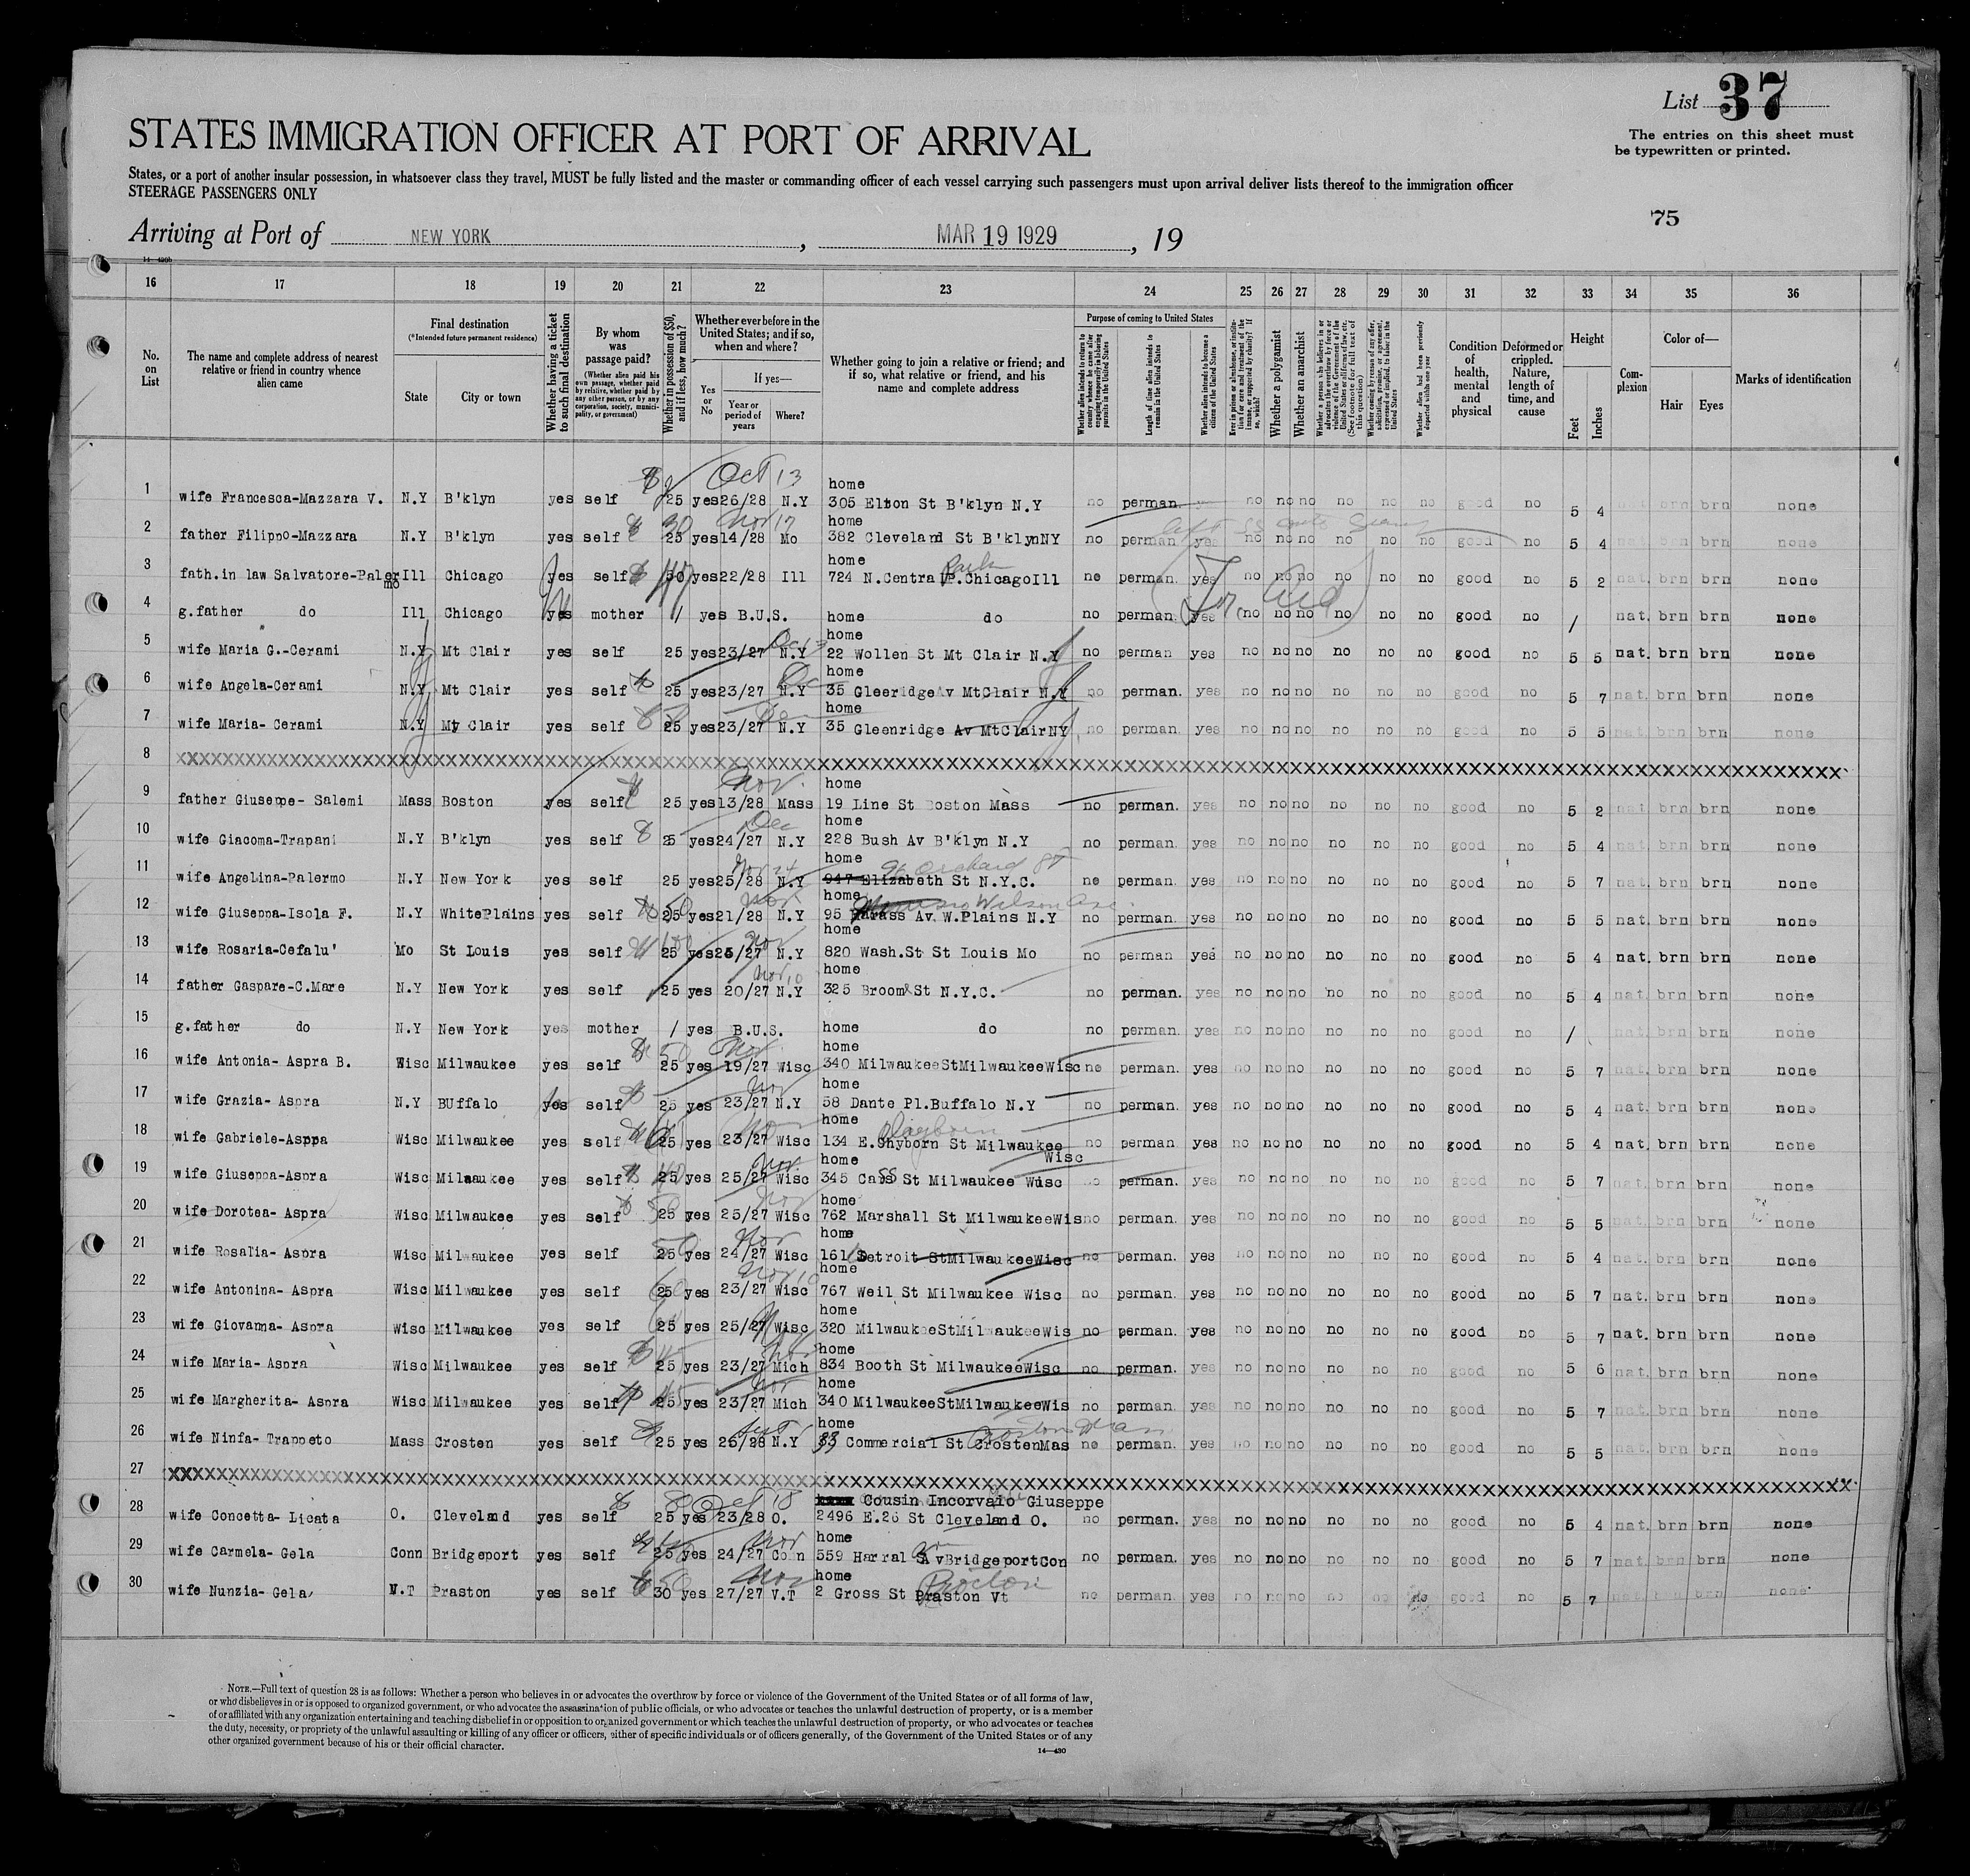 List 37
The entries on this sheet must
be typewritten or printed.
STATES IMMIGRATION OFFICER AT PORT OF ARRIVAL
States, or a port of another insular possession, in whatsoever class they travel, MUST be fully listed and the master or commanding officer of each vessel carrying such passengers must upon arrival deliver lists thereof to the immigration officer
STEERAGE PASSENGERS ONLY
75
Arriving at Port of NEW YORK, MAR 19 1929, 19
16 17 18 19 20 21 22 23 24 25 26 27 28 29 30 31 32 33 34 35 36
No. on List
The name and complete address of nearest relative or friend in country whence alien came
Final destination
(*Intended future permanent residence)
State
City or town
Whether having a ticket to such final destination
By whom was passage paid?
(Whether alien paid his own passage, whether paid by relative, whether paid by any other person, or by any corporation, society, municipality, or government)
Whether in possession of $50, and if less, how much?
Whether ever before in the United States; and if so, when and where?
Yes or No
If yes—
Year or period of years
Where?
Whether going to join a relative or friend; and if so, what relative or friend, and his name and complete address
Purpose of coming to United States
Length of time alien intends to remain in the United States
Whether alien intends to become a citizen of the United States
Whether a polygamist
Whether an anarchist
Condition of health, mental and physical
Deformed or crippled. Nature, length of time, and cause
Height
Feet
Inches
Complexion
Color of—
Hair
Eyes
Marks of identification
Oct 13
home
1 wife Francesca-Mazzara V. N.Y B'klyn yes self 25 yes 26/28 N.Y 305 Elton St B'klyn N.Y no perman. no no no no no no good no 5 4 brn brn none
30 Nov 17
home
2 father Filippo-Mazzara N.Y B'klyn yes self 25 yes 14/28 Mo 382 Cleveland St B'klyn NY no perman yes no no no no no no good no 5 4 nat. brn brn none
home
Park
3 fath.in law Salvatore-Palermo Ill Chicago yes self 30 yes 22/28 Ill 724 N.Central P.Chicago Ill ne perman. yes no no no no no no good no 5 2 nat. brn brn none
4 g.father do Ill Chicago yes mother / yes B.U.S. home do no perman. yes no no no no no no good no / nat. brn brn none
home
5 wife Maria G.-Cerami N.Y Mt Clair yes self 25 yes 23/27 N.Y 22 Wollen St Mt Clair N.Y no perman yes no no no no no no good no 5 5 nat. brn brn none
Dec
home
6 wife Angela-Cerami N.Y Mt Clair yes self 25 yes 23/27 N.Y 35 Gleeridge Av MtClair N.Y no perman. yes no no no no no no good no 5 7 nat. brn brn none
home
7 wife Maria- Cerami N.Y Mt Clair yes self 25 yes 23/27 N.Y 35 Gleenridge Av MtClair NY no perman. yes no no no no no no good no 5 5 nat. brn brn none
8
Nov.
home
9 father Giuseppe- Salemi Mass Boston yes self 25 yes 13/28 Mass 19 Line St Boston Mass no perman. yes no no no no no no good no 5 2 nat brn brn none
Dec
home
10 wife Giacoma-Trapani N.Y B'klyn yes self 25 yes 24/27 N.Y 228 Bush Av B'klyn N.Y no perman. yes no no no no no no good no 5 4 nat. brn brn none
Nov 24
home
96 Orchard St
11 wife Angelina-Palermo N.Y New York yes self 25 yes 25/28 N.Y 947 Elizabeth St N.Y.C. ne perman. yes no no no no no no good no 5 7 nat. brn brn none
50 Nov
home
Wilson Ave.
12 wife Giuseppa-Isola F. N.Y WhitePlains yes self 25 yes 21/28 N.Y 95 Av. W.Plains N.Y no perman. yes no no no no no no good no 5 5 nat. brn brn none
100 Nov
home
13 wife Rosaria-Cefalu' Mo St Louis yes self 25 yes 25/27 N.Y 820 Wash.St St Louis Mo no perman yes no no no no no no good no 5 4 nat. brn brn none
Nov 10
home
14 father Gaspare-C.Mare N.Y New York yes self 25 yes 20/27 N.Y 325 Broome St N.Y.C. no perman. yes no no no no no no good no 5 4 nat. brn brn none
15 g.father do N.Y New York yes mother / yes B.U.S. home do no perman. yes no no no no no no good no / nat. brn brn none
50 Nov
home
16 wife Antonia- Aspra B. Wisc Milwaukee yes self 25 yes 19/27 Wisc 340 MilwaukeeStMilwaukeeWisc no perman. yes no no no no no no good no 5 7 nat. brn brn none
Nov
home
17 wife Grazia- Aspra N.Y BUffalo yes self 25 yes 23/27 N.Y 58 Dante Pl.Buffalo N.Y no perman. yes no no no no no no good no 5 4 nat. brn brn none
Nov
home
18 wife Gabriele-Aspra Wisc Milwaukee yes self 25 yes 23/27 Wisc 134 E.Shyborn St Milwaukee Wisc no perman yes no no no no no no good no 5 4 nat. brn brn none
40 Nov.
home
19 wife Giuseppa-Aspra Wisc Milwaukee yes self 25 yes 25/27 Wisc 345 Cass St Milwaukee Wisc no perman. yes no no no no no no good no 5 7 nat. brn brn none
50 Nov
home
20 wife Dorotea- Aspra Wisc Milwaukee yes self 25 yes 25/27 Wisc 762 Marshall St MilwaukeeWis no perman. yes no no no no no no good no 5 5 nat. brn brn none
50 Nov
home
21 wife Rosalia- Aspra Wisc Milwaukee yes self 25 yes 24/27 Wisc 161 Detroit StMilwaukeeWisc no perman. yes no no no no no no good no 5 4 nat. brn brn none
Nov 10
home
22 wife Antonina- Aspra Wisc Milwaukee yes self 25 yes 23/27 Wisc 767 Weil St Milwaukee Wisc no perman. yes no no no no no no good no 5 7 nat. brn brn none
home
23 wife Giovanna- Aspra Wisc Milwaukee yes self 25 yes 25/27 Wisc 320 MilwaukeeStMilwaukeeWis no perman. yes no no no no no no good no 5 7 nat. brn brn none
Nov
home
24 wife Maria- Aspra Wisc Milwaukee yes self 25 yes 23/27 Mich 834 Booth St MilwaukeeWisc no perman. yes no no no no no no good no 5 6 nat. brn brn none
Nov
home
25 wife Margherita- Aspra Wisc Milwaukee yes self 25 yes 23/27 Mich 340 MilwaukeeStMilwaukeeWis no perman. yes no no no no no no good no 5 7 nat. brn brn none
Sept
home
Boston Mass
26 wife Ninfa- Trappeto Mass Crosten yes self 25 yes 25/28 N.Y 33 Commercial St CrostenMas ne perman. yes no no no no no no good no 5 5 nat. brn brn none
27
80 Oct 18
Cousin Incorvaio Giuseppe
28 wife Concetta- Licata O. Cleveland yes self 25 yes 23/28 O. 2496 E.26 St Cleveland O. no perman. yes no no no no no no good no 5 4 nat. brn brn none
Nov
home
29 wife Carmela- Gela Conn Bridgeport yes self 25 yes 24/27 Conn 559 Harral AvBridgeportCon no perman. yes no no no no no no good no 5 7 nat. brn brn none
50 Nov
home
Proctor
30 wife Nunzia- Gela V.T Praston yes self 30 yes 27/27 V.T 2 Gross St Praston Vt no perman. yes no no no no no no good no 5 7 brn none
NOTE.—Full text of question 28 is as follows: Whether a person who believes in or advocates the overthrow by force or violence of the Government of the United States or of all forms of law,
or who disbelieves in or is opposed to organized government, or who advocates the assassination of public officials, or who advocates or teaches the unlawful destruction of property, or is a member
of or affiliated with any organization entertaining and teaching disbelief in or opposition to organized government or which teaches the unlawful destruction of property, or who advocates or teaches
the duty, necessity, or propriety of the unlawful assaulting or killing of any officer or officers, either of specific individuals or of officers generally, of the Government of the United States or of any
other organized government because of his or their official character.
14—430